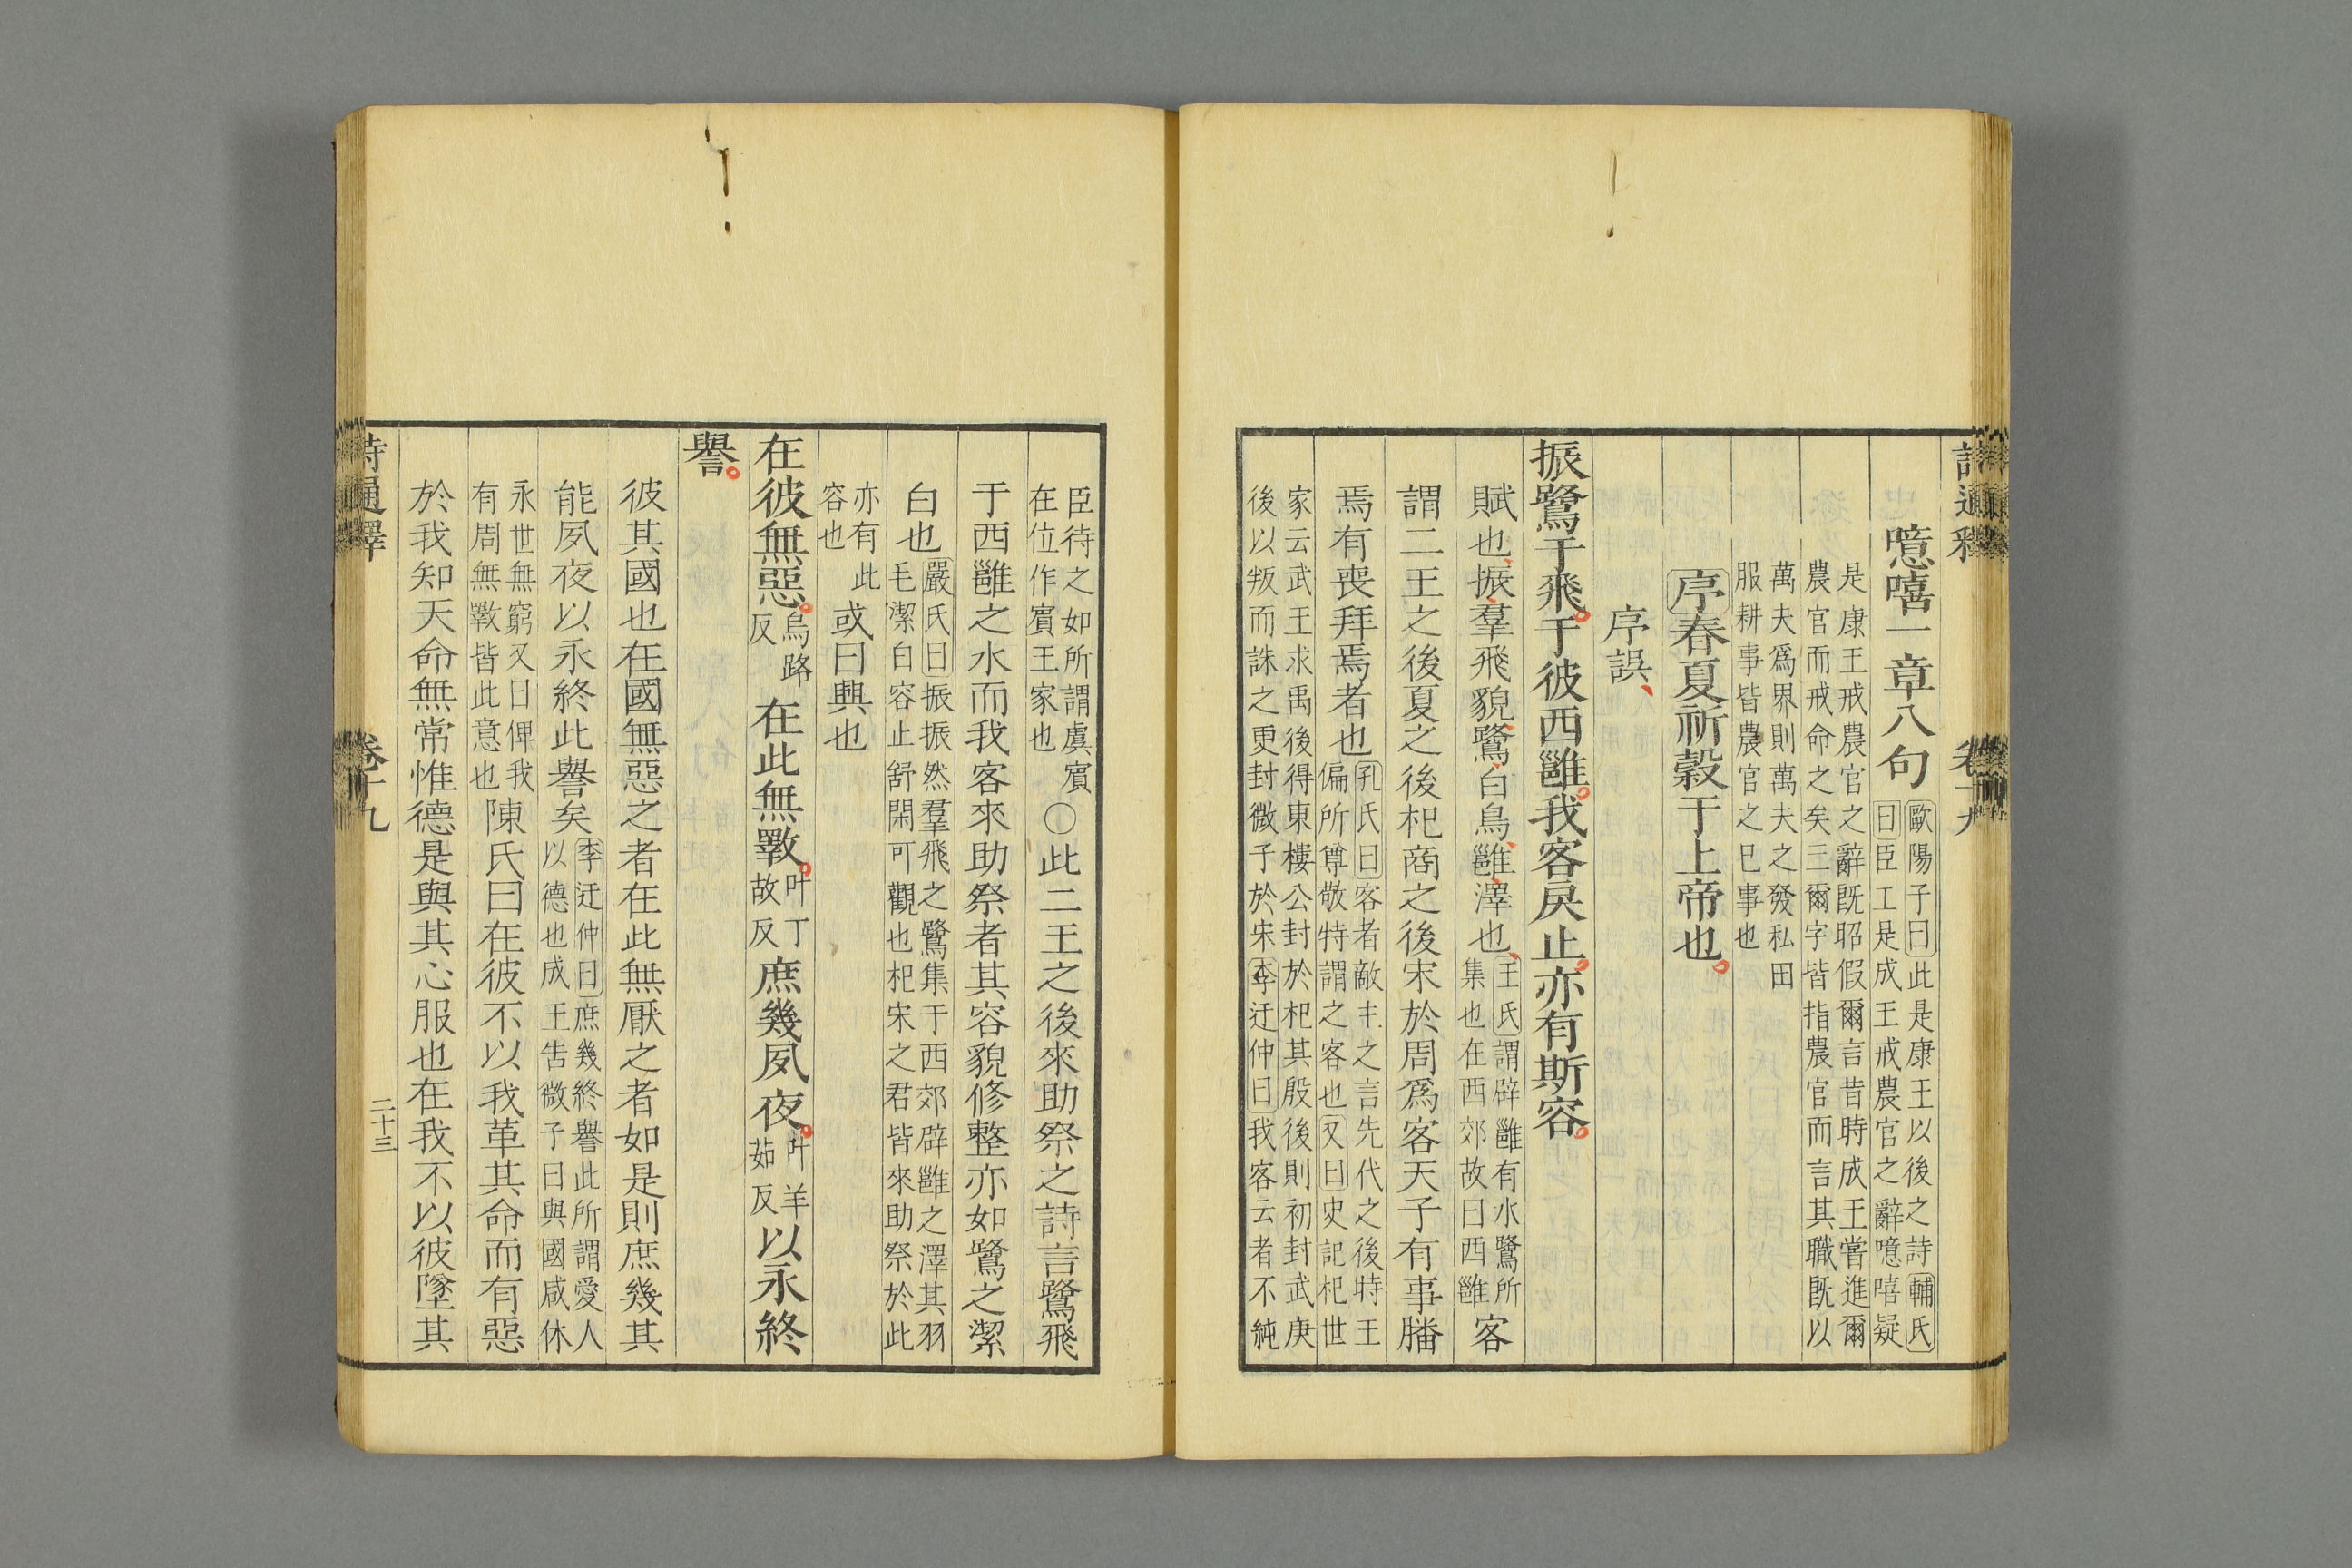 詩通釋 卷十九
噫嘻一章八句
歐陽子曰此是康王以後之詩輔氏
曰臣工是成王戒農官之辭噫嘻疑
是康王戒農官之辭既昭假爾言昔時成王嘗進爾
農官而戒命之矣三爾字皆指農官而言其職既以
萬夫爲界則萬夫之發私田
服耕事皆農官之巳事也
序春夏祈穀于上帝也
序誤
振鷺于飛于彼西雝我客戾止亦有斯容
賦也振羣飛貌鷺白鳥雝澤也
王氏謂辟雝有水鷺所
集也在西郊故曰西雝
客
謂二王之後夏之後杞商之後宋於周爲客天子有事膰
焉有喪拜焉者也
孔氏曰客者敵主之言先代之後時王
偏所尊敬特謂之客也又曰史記杞世
家云武王求禹後得東樓公封於杞其殷後則初封武庚
後以叛而誅之更封微子於宋李迂仲曰我客云者不純
臣待之如所謂虞賓
在位作賓王家也
○此二王之後來助祭之詩言鷺飛
于西雝之水而我客來助祭者其容貌修整亦如鷺之潔
白也
嚴氏曰振振然羣飛之鷺集于西郊辟雝之澤其羽
毛潔白容止舒閑可觀也杞宋之君皆來助祭於此
亦有此
容也
或曰興也
在彼無惡
烏路
反
在此無斁
叶丁
故反
庶幾夙夜
叶羊
茹反
以永終
譽
彼其國也在國無惡之者在此無厭之者如是則庶幾其
能夙夜以永終此譽矣
李迂仲曰庶幾終譽此所謂愛人
以德也成王告微子曰與國咸休
永世無窮又曰俾我
有周無斁皆此意也
陳氏曰在彼不以我革其命而有惡
於我知天命無常惟德是與其心服也在我不以彼墜其
詩通釋 卷十九 二十三